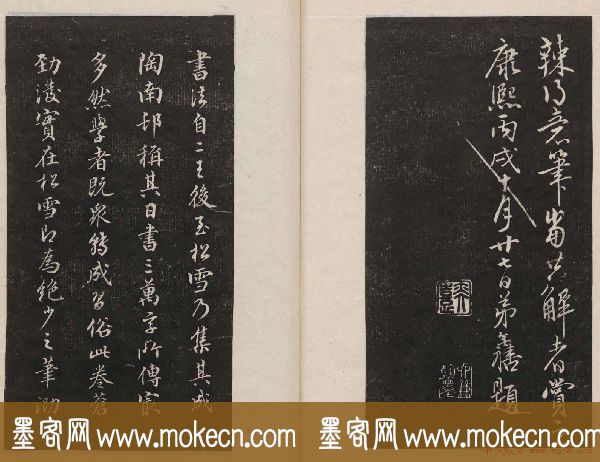 辣得意筆當共解者賞
康熙丙戌十月廿七日弟題
書法自二王後至松雪乃集其成
陶南邨稱其日書三萬字所傳最
多然學者既眾轉成習俗此卷蒼
勁淩實在松雪即為絕少之筆
墨客网 www.mokecn.com
墨客网 www.mokecn.com